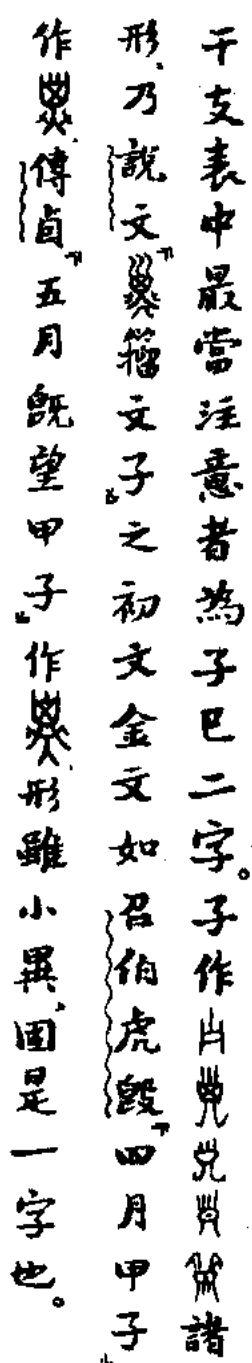 干支表中最當注意者為子巳二字。子作諸
形、乃說文「籀文子」之初文金文如召伯虎𣪘「四月甲子」
作、傳貞「五月既望甲子」作、形雖小異、固是一字也。